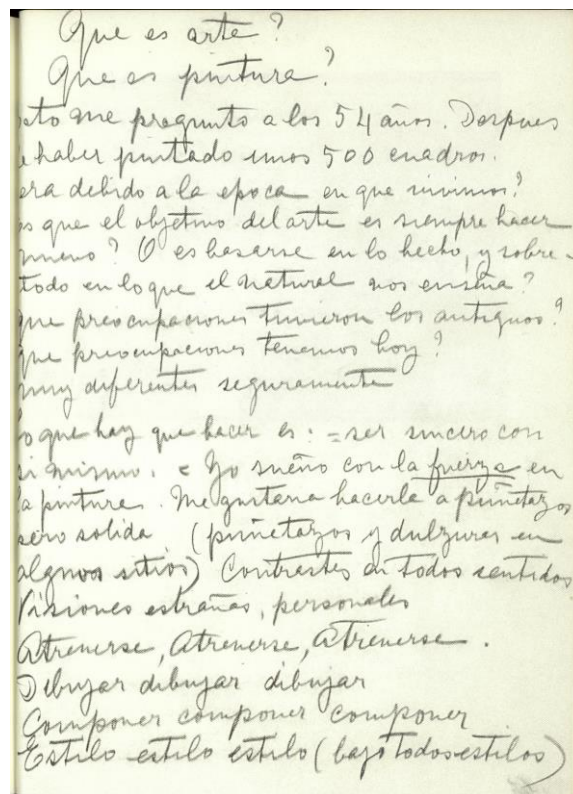 Que es arte?
Que es pintura?
Esto me pregunto a los 54 años. Despues
de haber pintado unos 500 cuadros.
Sera debido a la epoca en que vivimos?
Es que el objetivo del arte es siempre hacer
nuevo? O es basarse en lo hecho, y sobre-
todo en lo que el natural nos enseña?
que preocupaciones tuvieron los antiguos?
que preocupaciones tenemos hoy?
muy diferentes seguramente
lo que hay que hacer es: = ser sincero con
si mismo. = Yo sueño con la fuerza en
la pintura. Me gustaria hacerla a puñetazos
pero solida (puñetazos y dulzuras en
algunos sitios) Contrastes en todos sentidos
Visiones estrañas, personales
Atreverse, Atreverse, Atreverse.
Dibujar dibujar dibujar
Componer componer componer
Estilo estilo estilo (bajo todos estilos)